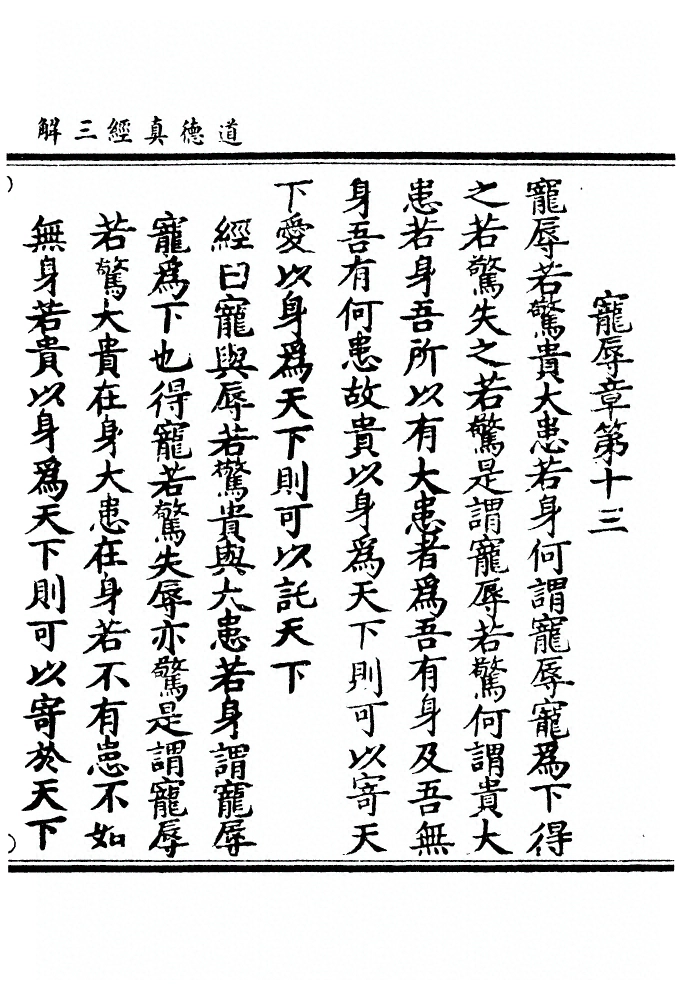 道德真經三解
寵辱章第十三
寵辱若驚貴大患若身何謂寵辱寵爲下得
之若驚失之若驚是謂寵辱若驚何謂貴大
患若身吾所以有大患者爲吾有身及吾無
身吾有何患故貴以身爲天下則可以寄天
下愛以身爲天下則可以託天下
經曰寵與辱若驚貴與大患若身謂寵辱
寵爲下也得寵若驚失辱亦驚是謂寵辱
若驚大貴在身大患在身若不有患不如
無身若貴以身爲天下則可以寄於天下